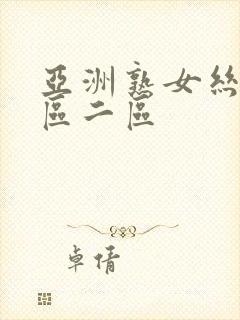 亞洲熟女絲
區二區
卓倩